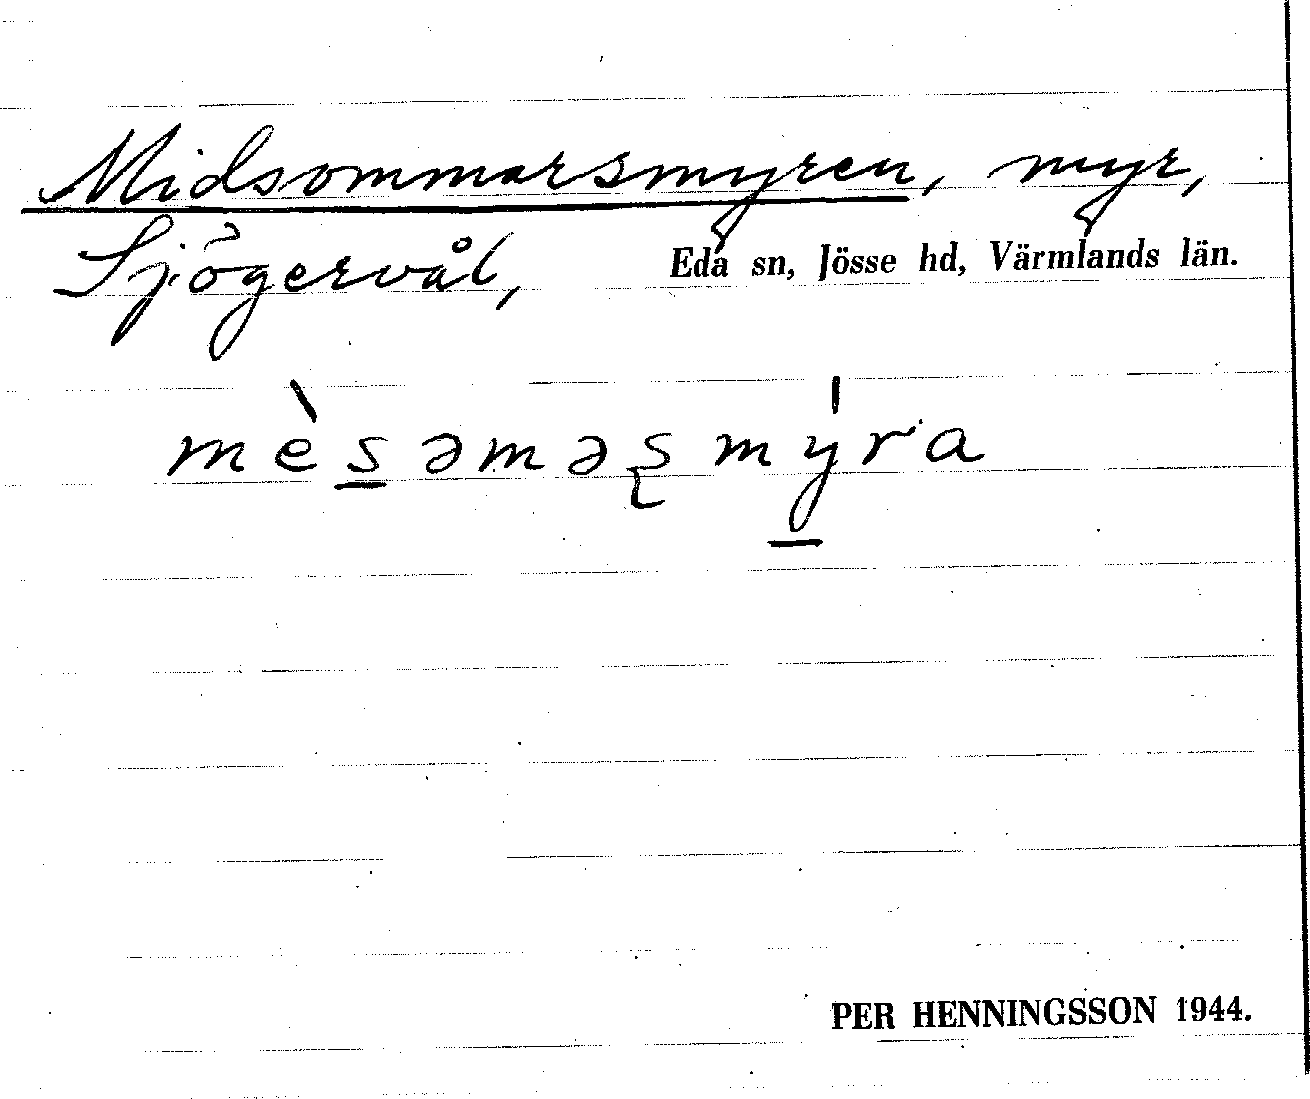 Midsommarsmyren, myr,
Sjögervål, Eda sn, Jösse hd, Värmlands län.
mè̀s̲əməʂmý̲ra
PER HENNINGSSON 1944.